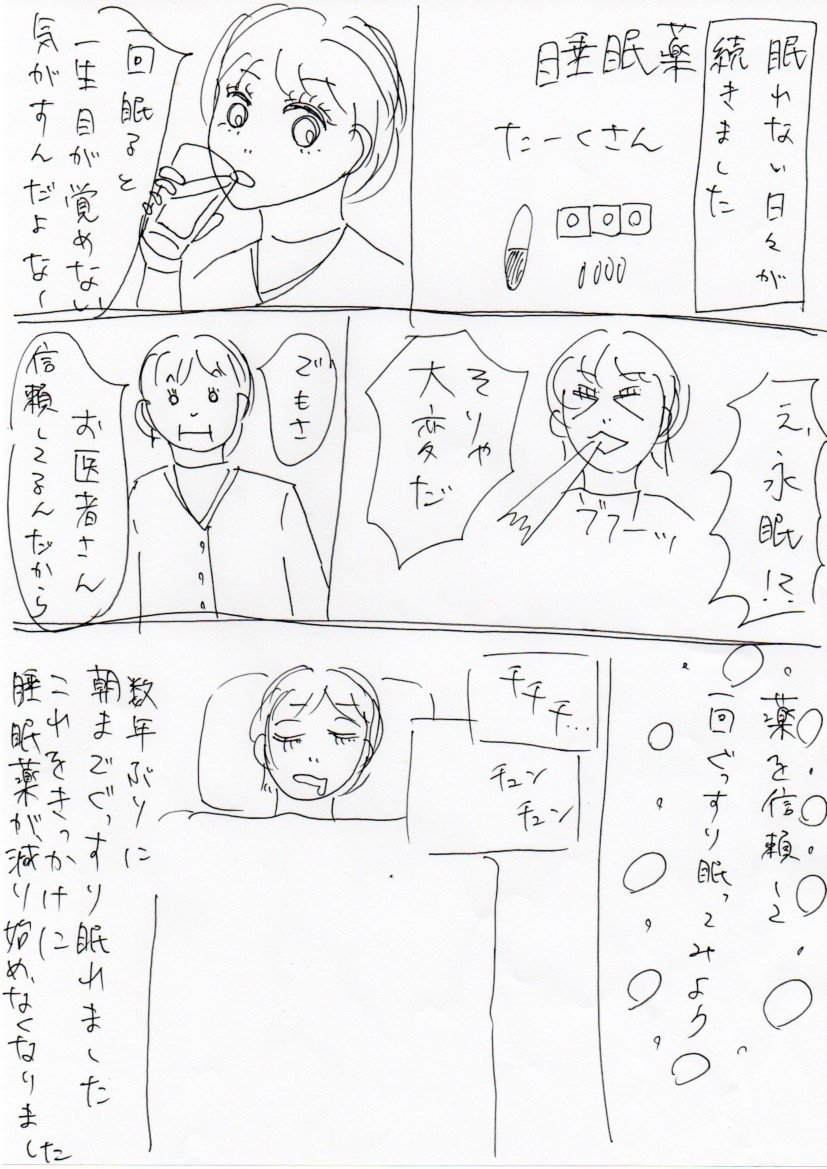 眠れない日々が
続きました
睡眠薬
たーくさん
一回眠ると
一生目が覚めない
気がすんだよなー
え、永眠!?
ブフーッ
そりゃ
大変だ
でもさ
お医者さん
信頼してるんだから
薬を信頼して
一回ぐっすり眠ってみよう
チチチ...
チュン
チュン
数年ぶりに
朝までぐっすり眠れました
これをきっかけに
睡眠薬が、減り始め、なくなりました